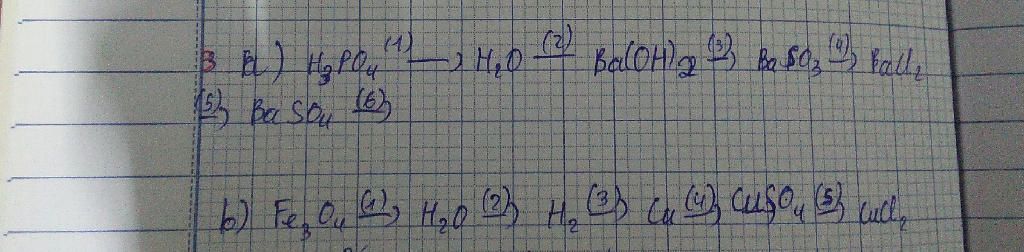 3 a) H₃PO₄ (1)→ H₂O (2)— Ba(OH)₂ (3)→ BaSO₃ (4)→ BaCl₂
(5)→ BaSO₄ (6)→
b) Fe₃O₄ (1)→ H₂O (2)→ H₂ (3)→ Cu (4)→ CuSO₄ (5)→ CuCl₂